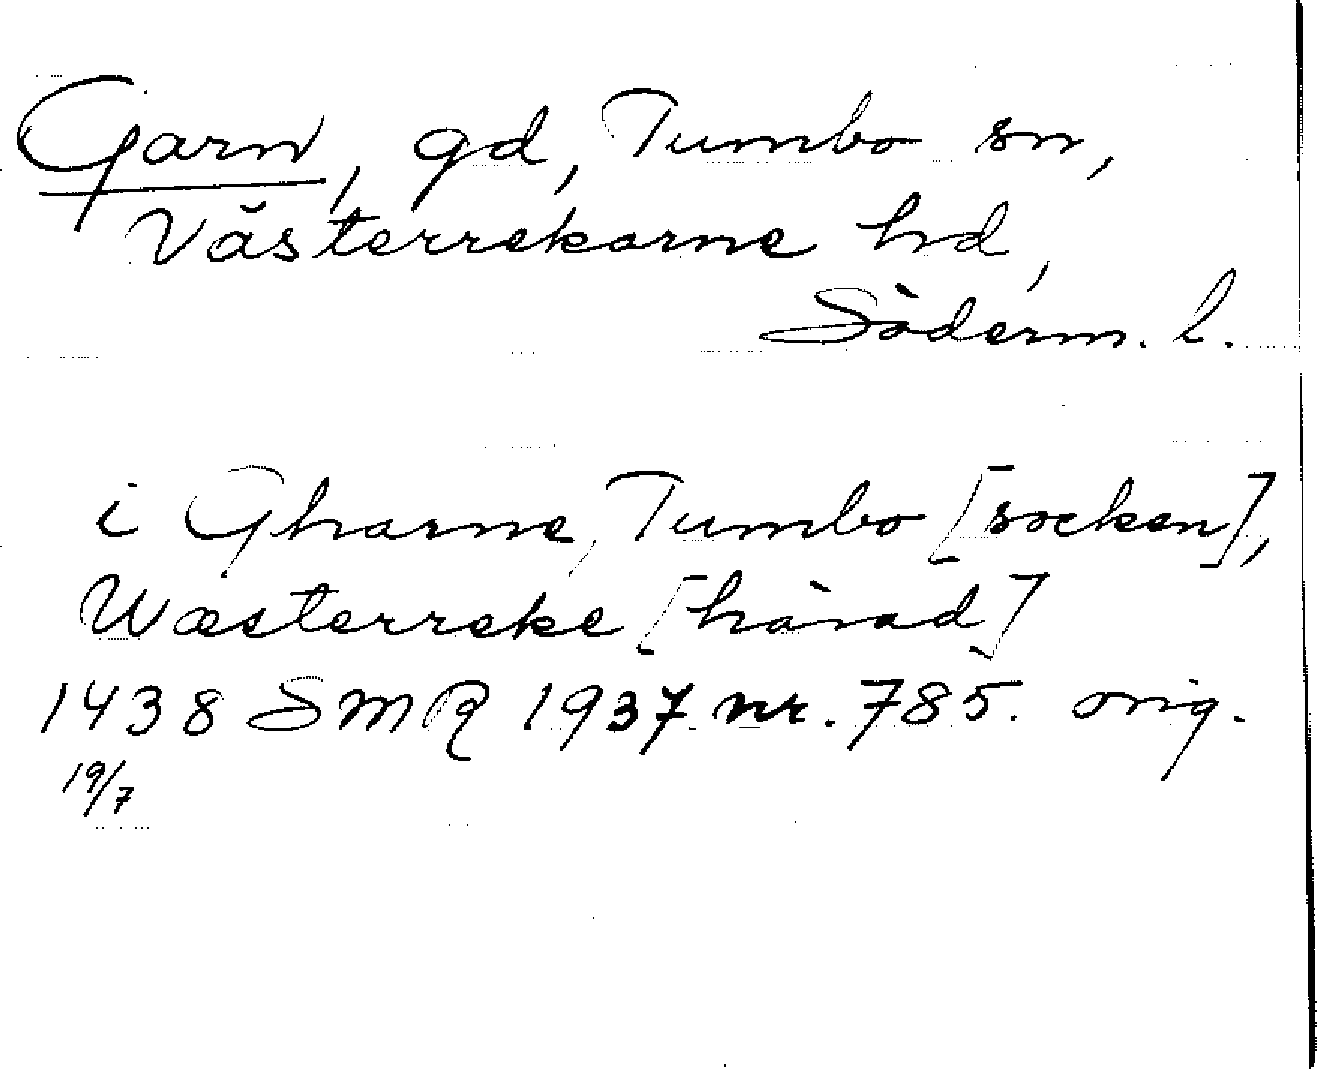 Garn, gd, Tumbo sn,
Västerrekarne hd,
Söderm. l.
i Gharne, Tumbo [socken],
Wæsterreke [härad]
1438 SMR 1937 nr. 785. orig.
19/7